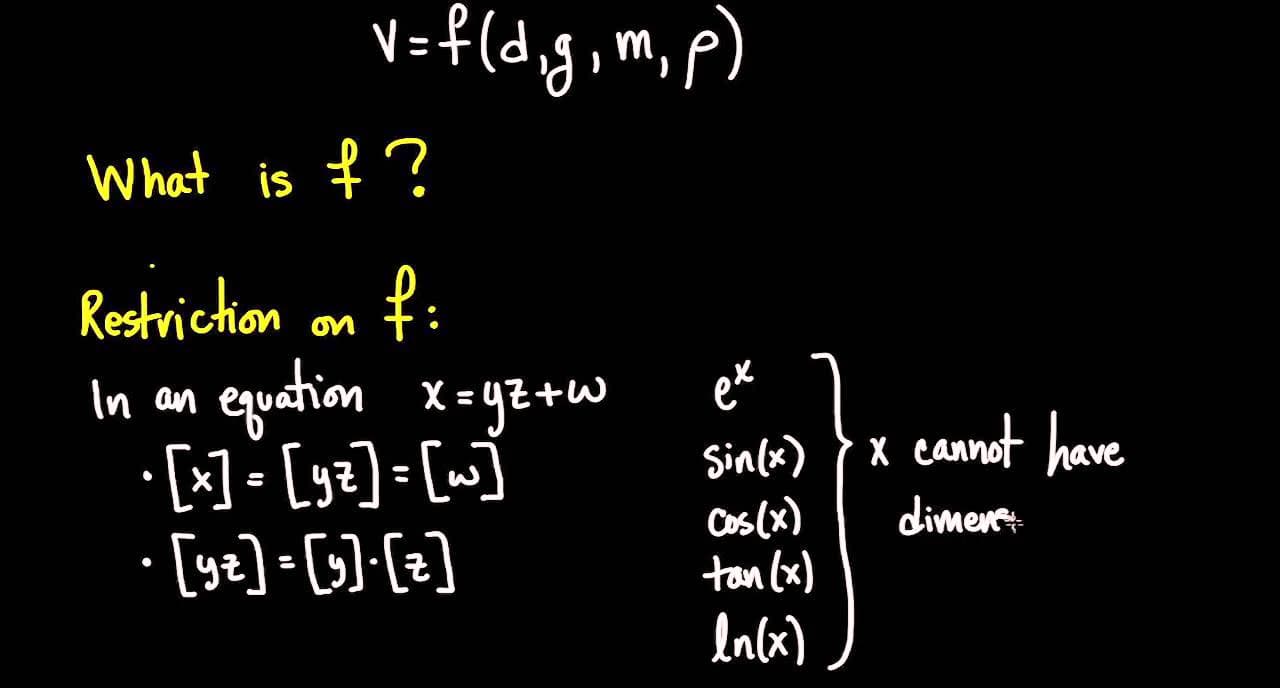 v=f(d,g,m,ρ)
What is f?
Restriction on f:
In an equation x=yz+w
· [x]=[yz]=[w]
· [yz]=[y]·[z]
e^x
sin(x)
cos(x)
tan(x)
ln(x)
x cannot have
dimens